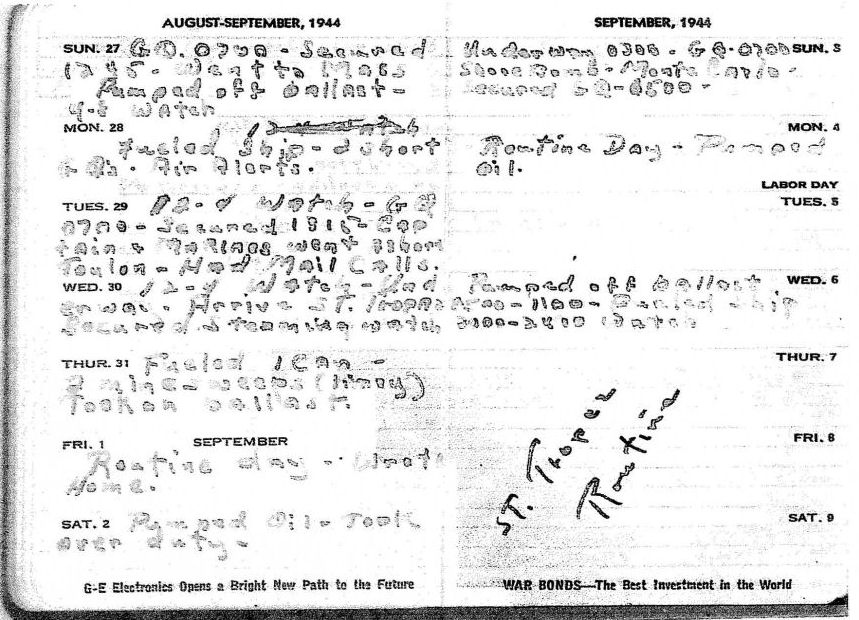 AUGUST-SEPTEMBER, 1944
SUN. 27 G.Q. 0700 - Secured
1245 - Went to Mass
Pumped off ballast -
4-8 Watch
MON. 28
Fueled Ship - 2 short
G Q's - Air Alerts.
TUES. 29 12-4 Watch - G Q
0700 - Secured 1815 - Cap
tain & Marines went ashore
Toulon - Had Mail Calls.
WED. 30 12-4 Watch - Und
erway - Arrive St. Tropez
Secured steaming watch
THUR. 31 Fueled 1 Can -
2 minesweeps (limey)
Took on ballast.
FRI. 1 SEPTEMBER
Routine day - Wrote
Home.
SAT. 2 Pumped Oil - Took
over duty -
G-E Electronics Opens a Bright New Path to the Future
SEPTEMBER, 1944
Underway 0300 - G Q - 0700 SUN. 3
Shore Bomb - Monte Carlo -
Secured G Q
MON. 4
Routine Day - Pumped
Oil.
LABOR DAY
TUES. 5
Pumped off ballast WED. 6
- 1100 - Fueled ship
2100-2400 Watch
THUR. 7
FRI. 8
ST. Tropez
Routine
SAT. 9
WAR BONDS—The Best Investment in the World